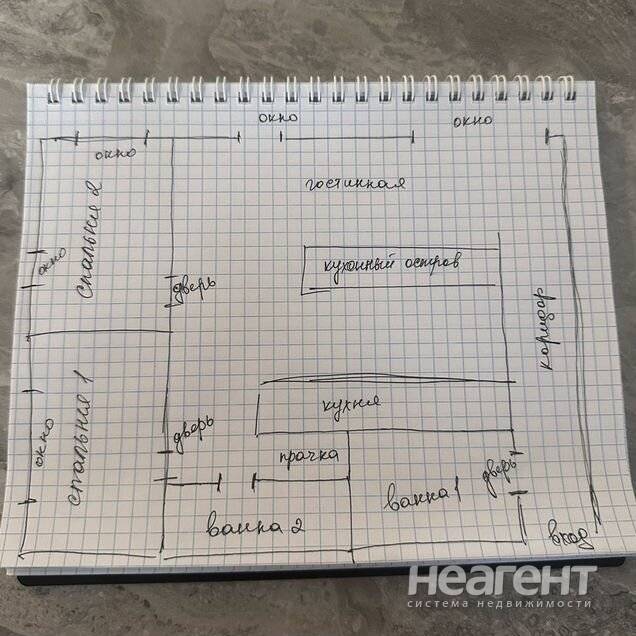 окно
окно
окно
гостинная
спальня 2
окно
кухонный остров
дверь
коридор
кухня
спальня 1
окно
дверь
прачка
дверь
ванна 1
ванна 2
вход
Неагент
система недвижимости